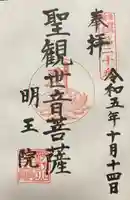 奉拝
令和五年十月十四日
聖観世音菩薩
明王院